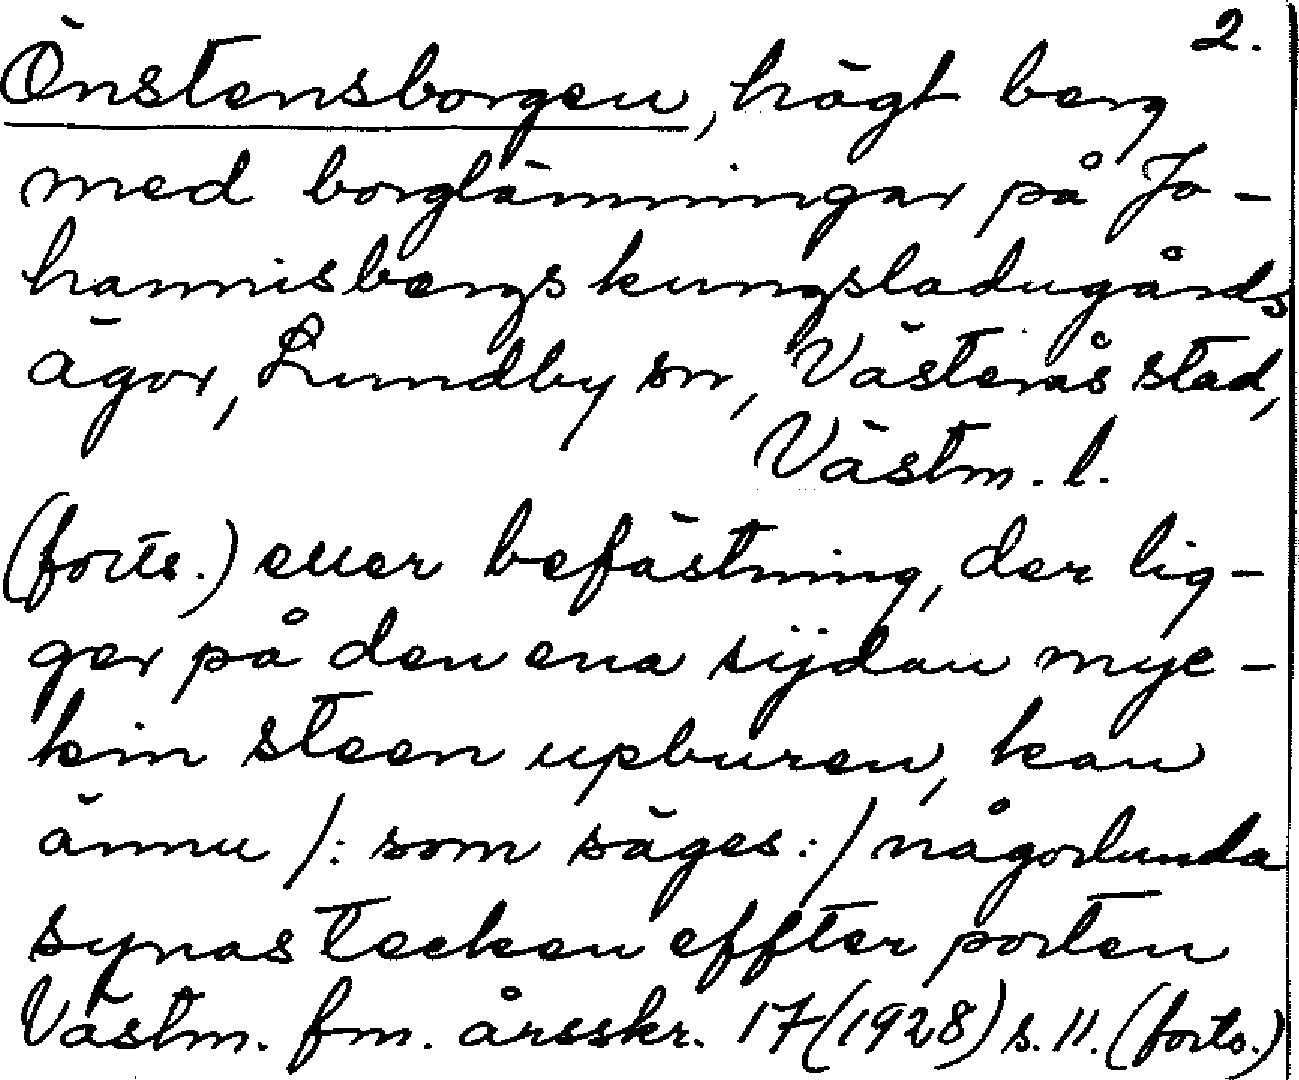 2.
Önstensborgen, högt berg
med borglämningar på Jo-
hannisbergs kungsladugårds
ägor, Lundby sn, Västerås stad,
Västm. l.
(forts.) eller befästning, der lig-
ger på den ena sijdan myc-
kin steen upburen, kan
ännu /: som säges :/ någorlunda
synas tecken effter porten
Västm. fm. årsskr. 17 (1928) s. 11. (forts.)